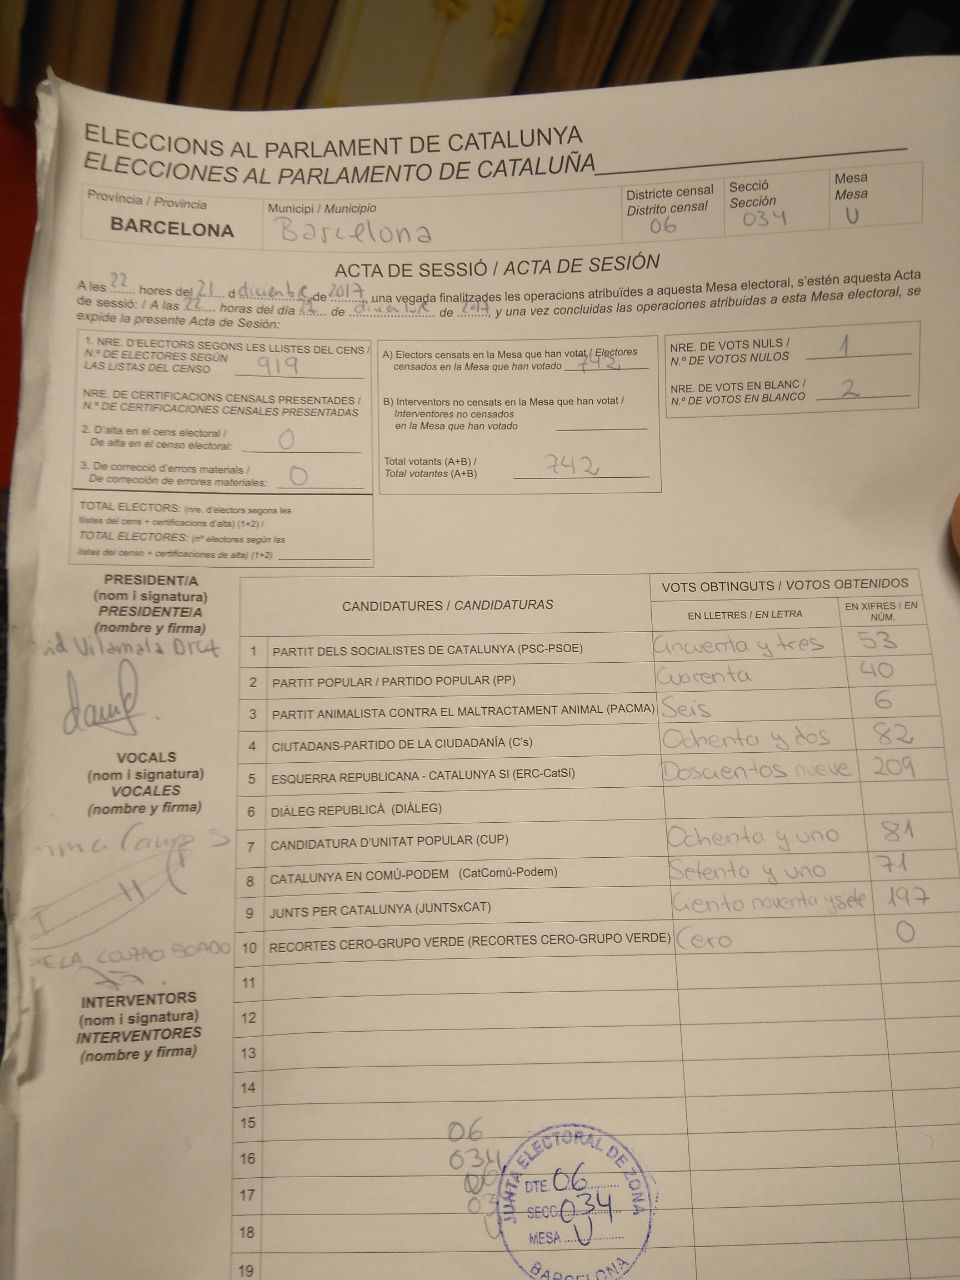 ELECCIONS AL PARLAMENT DE CATALUNYA
ELECCIONES AL PARLAMENTO DE CATALUÑA
Província / Provincia
BARCELONA
Municipi / Municipio
Barcelona
Districte censal
Distrito censal
06
Secció
Sección
034
Mesa
Mesa
U
ACTA DE SESSIÓ / ACTA DE SESIÓN
A les 22 hores del 21 d diciembre de 2017, una vegada finalitzades les operacions atribuïdes a aquesta Mesa electoral, s'estén aquesta Acta
de sessió: / A las 22 horas del día 21 de diciembre de 2017, y una vez concluidas las operaciones atribuidas a esta Mesa electoral, se
expide la presente Acta de Sesión:
1. NRE. D'ELECTORS SEGONS LES LLISTES DEL CENS /
N.º DE ELECTORES SEGÚN
LAS LISTAS DEL CENSO 919
NRE. DE CERTIFICACIONS CENSALS PRESENTADES /
N.º DE CERTIFICACIONES CENSALES PRESENTADAS
2. D'alta en el cens electoral /
De alta en el censo electoral: 0
3. De correcció d'errors materials /
De corrección de errores materiales: 0
TOTAL ELECTORS: (nre. d'electors segons les
llistes del cens + certificacions d'alta) (1+2) /
TOTAL ELECTORES: (nº electores según las
listas del censo + certificaciones de alta) (1+2)
A) Electors censats en la Mesa que han votat / Electores
censados en la Mesa que han votado 742
B) Interventors no censats en la Mesa que han votat /
Interventores no censados
en la Mesa que han votado
Total votants (A+B) /
Total votantes (A+B) 742
NRE. DE VOTS NULS /
N.º DE VOTOS NULOS 1
NRE. DE VOTS EN BLANC /
N.º DE VOTOS EN BLANCO 2
PRESIDENT/A
(nom i signatura)
PRESIDENTE/A
(nombre y firma)
Vilamala
VOCALS
(nom i signatura)
VOCALES
(nombre y firma)
INTERVENTORS
(nom i signatura)
INTERVENTORES
(nombre y firma)
CANDIDATURES / CANDIDATURAS
VOTS OBTINGUTS / VOTOS OBTENIDOS
EN LLETRES / EN LETRA
EN XIFRES / EN
NÚM.
1 PARTIT DELS SOCIALISTES DE CATALUNYA (PSC-PSOE) Cincuenta y tres 53
2 PARTIT POPULAR / PARTIDO POPULAR (PP) Cuarenta 40
3 PARTIT ANIMALISTA CONTRA EL MALTRACTAMENT ANIMAL (PACMA) Seis 6
4 CIUTADANS-PARTIDO DE LA CIUDADANÍA (C's) Ochenta y dos 82
5 ESQUERRA REPUBLICANA - CATALUNYA SI (ERC-CatSí) Doscientos nueve 209
6 DIÀLEG REPUBLICÀ (DIÀLEG)
7 CANDIDATURA D'UNITAT POPULAR (CUP) Ochenta y uno 81
8 CATALUNYA EN COMÚ-PODEM (CatComú-Podem) Setenta y uno 71
9 JUNTS PER CATALUNYA (JUNTSxCAT) Ciento noventa y siete 197
10 RECORTES CERO-GRUPO VERDE (RECORTES CERO-GRUPO VERDE) Cero 0
11
12
13
14
15
16
17
18
19
06
034
JUNTA ELECTORAL DE ZONA
DTE. 06
SECC. 034
MESA U
BARCELONA